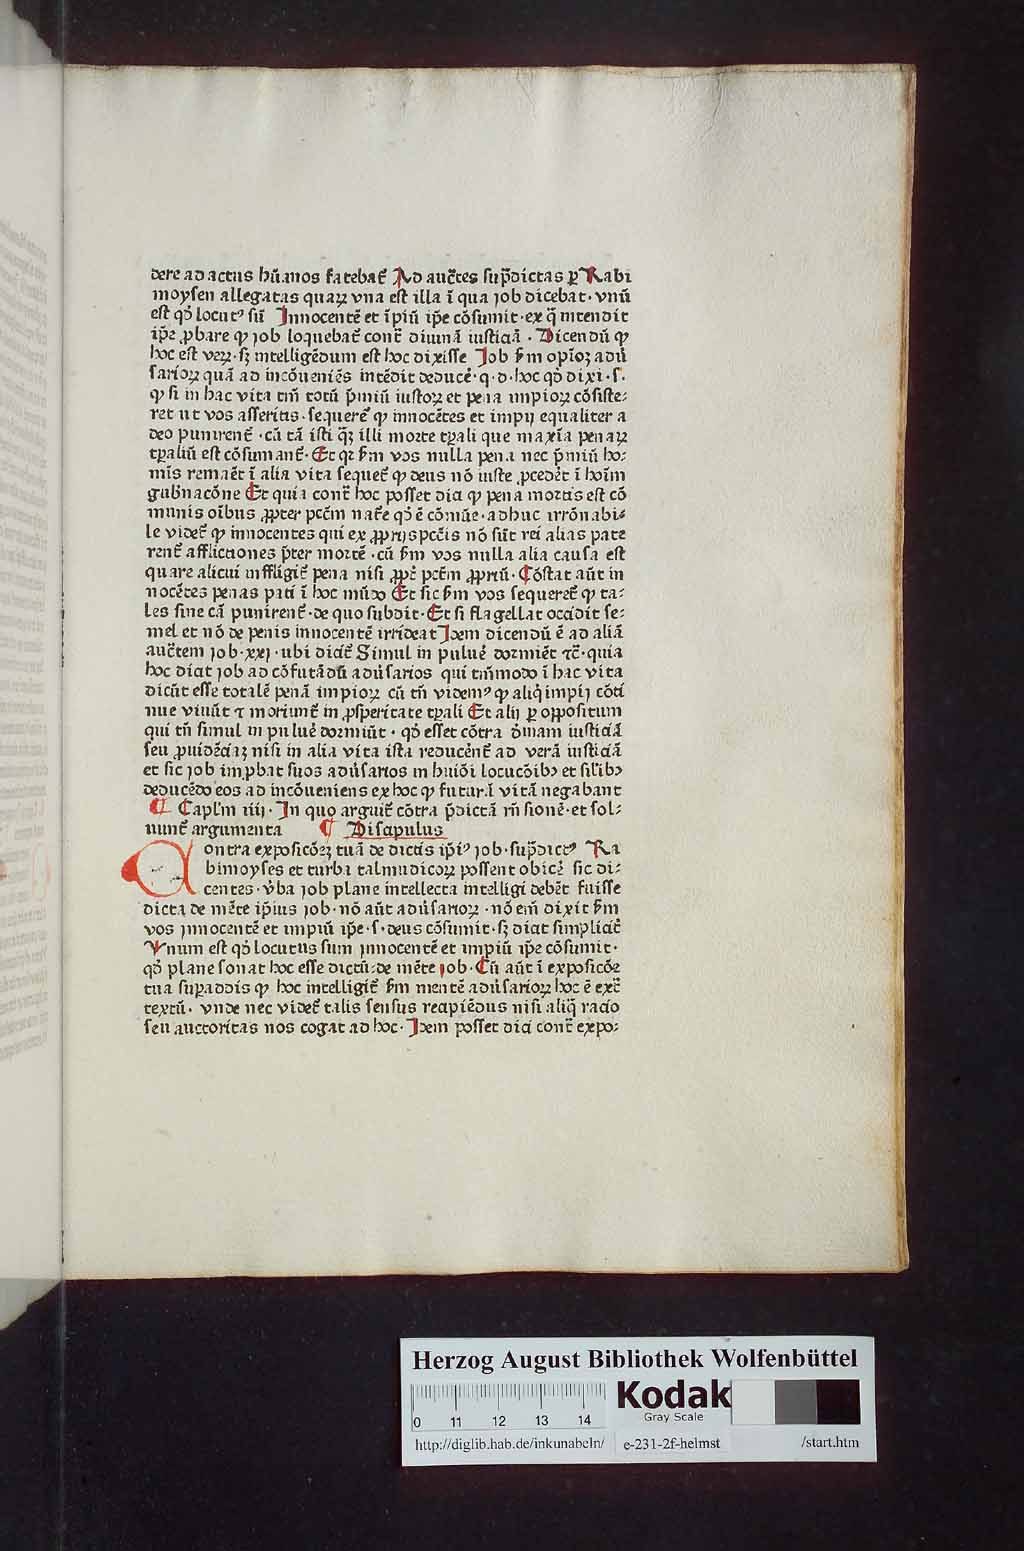 dere ad actus hūanos fatebat᷑ Ad auct᷑es sup̄dictas ꝑ Rabi
moysen allegatas quaꝝ vna est illa ī qua job dicebat· vnū
est qđ locutꝰ sū Innocentē et īpiū ip̄e cōsumit· ex q̄ intendit
ip̄e ꝓbare ꝙ job loquebat᷑ cont᷑ diuinā iusticiā · Dicendū ꝙ
hoc est veꝝ· sꝫ intelligēdum est hoc dixisse Job ẜm opīoꝫ adu᷑
sarioꝝ quā ad incōueniēs intēdit deduce᷑· q· d· hoc qđ dixi· s·
ꝙ si in hac vita tm̄ totū p̄miū iustoꝝ et pena impioꝝ cōsiste⸗
ret ut vos asseritis· sequere᷑ ꝙ innocētes et impij equaliter a
deo punirent᷑ · cū tā isti q̄ꝫ illi morte tꝑali que maxīa penaꝝ
tꝑaliū est cōsumant᷑· Et qꝛ ẜm vos nulla pena nec p̄miū ho⸗
mīs remaēt ī alia vita sequet᷑ ꝙ deus nō iuste ꝓcedēt ī hoīm
gub̄nacōne Et quia cont᷑ hoc posset dici ꝙ pena mortis est cō
munis oībus ꝓpter pctm̄ nat᷑e qđ ē cōmūe· adhuc irrōnabi⸗
le videt᷑ ꝙ innocentes qui ex ꝓprijs pctīs nō sūt rei alias pate
rent᷑ afflictiones p̄ter mortē · cū ẜm vos nulla alia causa est
quare alicui inffligit᷑ pena nisi ꝓpt᷑ pctm̄ ꝓpriū· Cōstat aūt in
nocētes penas pati ī hoc mūdo Et sic ẜm vos sequeret᷑ ꝙ ta⸗
les sine cā punirent᷑· de quo subdit· Et si flagellat occidit se⸗
mel et nō de penis innocentē irrideat Jdem dicendū ē ad aliā
auct᷑em job· xxj · ubi dicit᷑ Simul in pulue᷑ dormiēt ⁊c̄· quia
hoc dicit job ad cōfutādū adu᷑sarios qui tm̄modo ī hac vita
dicūt esse totalē penā impioꝝ cū tn̄ videmꝰ ꝙ aliq̄ impij cōti
nue viuūt ⁊ moriunt᷑ in ꝓsperitate tꝑali Et alij ꝑ oppositum
qui tn̄ simul in pulue᷑ dormiūt · qđ esset cōtra diuinam iusticiā
seu ꝓuidēciaꝫ nisi in alia vita ista reducēnt᷑ ad verā iusticiā
et sic job imꝓbat suos adu᷑sarios in huiōi locucōibꝫ et sil̄ibꝫ
deducēdo eos ad incōueniens ex hoc ꝙ futurā vitā negabant
¶ Capl̄m iiij· In quo arguit᷑ cōtra p̄dictā rn̄sionē· et sol⸗
uunt᷑ argumenta ¶ Discipulus
Contra exposicōeꝫ tuā de dictis ip̄iꝰ job· sup̄dictꝰ Ra
bimoyses et turba talmudicoꝝ possent obice᷑ sic di⸗
centes· v᷑ba job plane intellecta intelligi debēt fuisse
dicta de mēte ip̄ius job· nō aūt adu᷑sarioꝝ · nō em̄ dixit ẜm
vos jnnocentē et impiū ip̄e· s· deus cōsumit· sꝫ dicit simplicit᷑
Vnum est qđ locutus sum jnnocentē et impiū ip̄e cōsumit·
qđ plane sonat hoc esse dictū· de mēte job· Cū aūt ī exposicōe
tua suꝑaddis ꝙ hoc intelligit᷑ ẜm mentē adu᷑sarioꝝ hoc ē ext᷑
textū· vnde nec videt᷑ talis sensus recipiēdus nisi aliq̄ racio
seu auctoritas nos cogat ad hoc· Jdem posset dici cont᷑ expo⸗
Herzog August Bibliothek Wolfenbüttel
Kodak
Gray Scale
0 11 12 13 14
http://diglib.hab.de/inkunabeln/ e-231-2f-helmst /start.htm